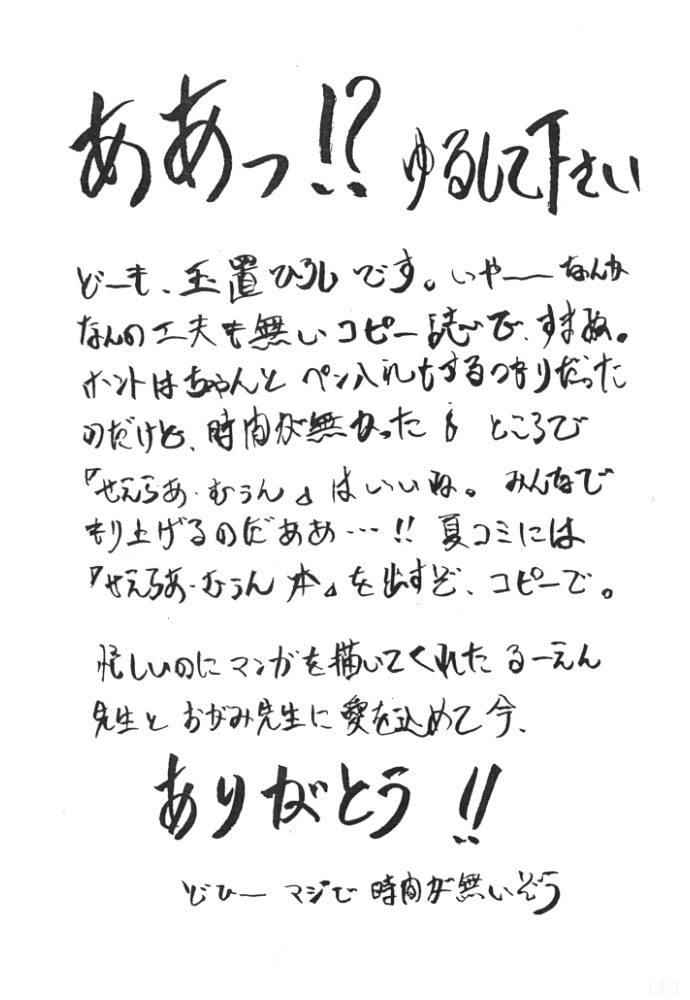 ああっ!? ゆるして下さい
どーも、玉置ひろしです。いやーなんか
なんの工夫も無いコピー誌で、すまぬ。
ホントはちゃんと ペン入れもするつもりだった
のだけど、時間が無かった ところで
『せえらあ・むうん』はいいね。みんなで
もり上げるのだああ…!! 夏コミには
『せえらあ・むうん本』を出すぞ、コピーで。
忙しいのにマンガを描いてくれた るーえん
先生と おがみ先生に愛を込めて今、
ありがとう!!
どひー マジで 時間が無いぞう